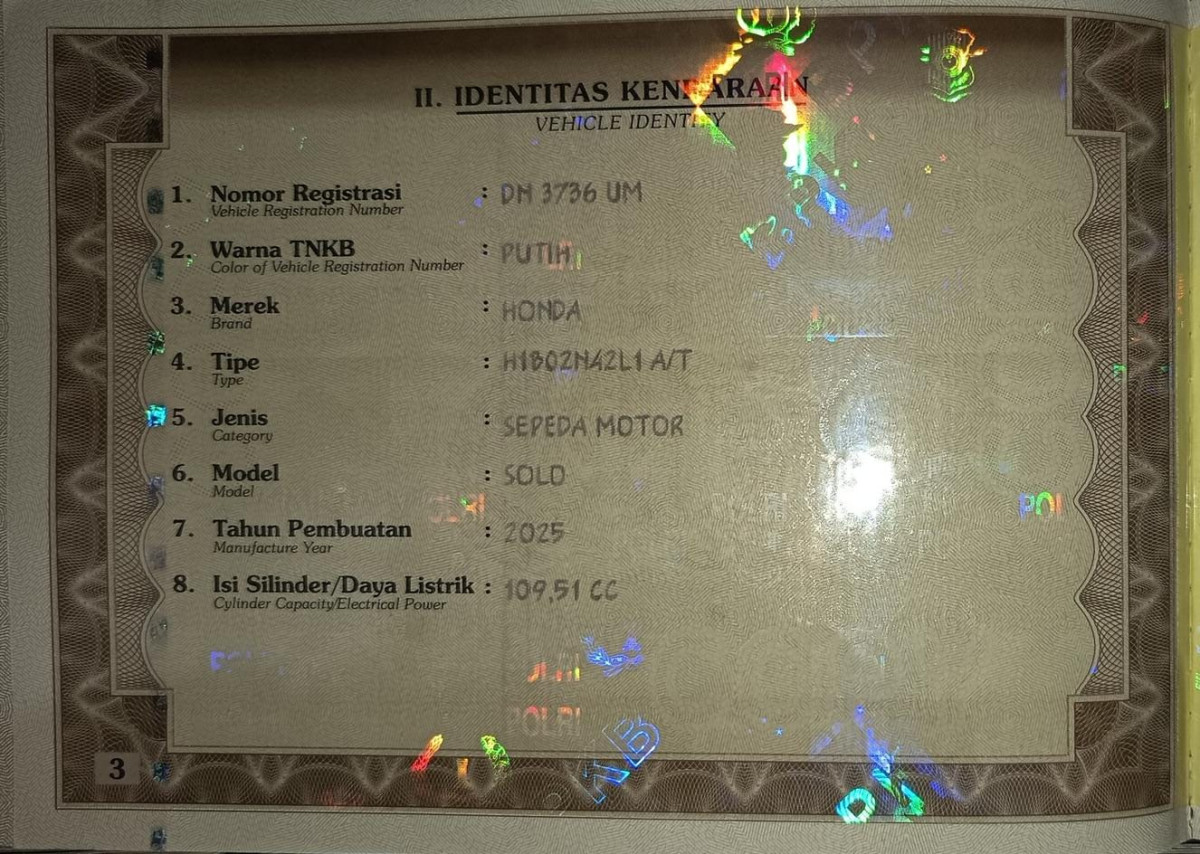 II. IDENTITAS KENDARAAN
VEHICLE IDENTITY
1. Nomor Registrasi : DN 3736 UM
Vehicle Registration Number
2. Warna TNKB : PUTIH
Color of Vehicle Registration Number
3. Merek : HONDA
Brand
4. Tipe : H1B02N42L1 A/T
Type
5. Jenis : SEPEDA MOTOR
Category
6. Model : SOLO
Model
7. Tahun Pembuatan : 2025
Manufacture Year
8. Isi Silinder/Daya Listrik : 109,51 CC
Cylinder Capacity/Electrical Power
POLRI
3